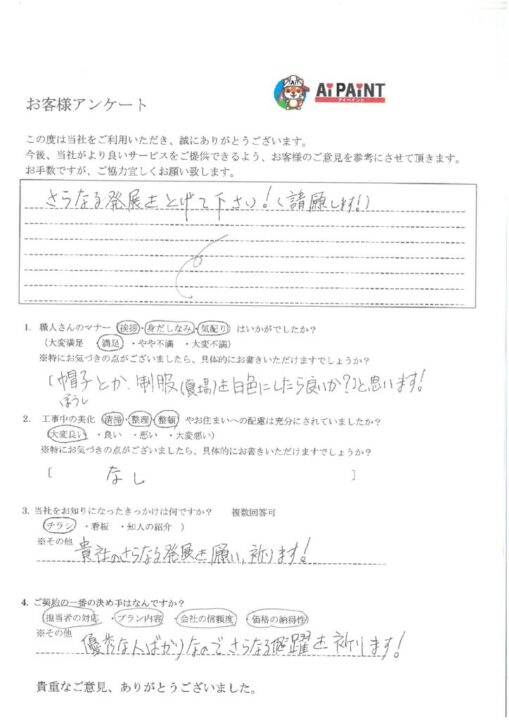 Ai PAiNT
アイペイント
お客様アンケート
この度は当社をご利用いただき、誠にありがとうございます。
今後、当社がより良いサービスをご提供できるよう、お客様のご意見を参考にさせて頂きます。
お手数ですが、ご協力宜しくお願い致します。
さらなる発展をとげて下さい！(請願します！)
1. 職人さんのマナー（挨拶・身だしなみ・気配り）はいかがでしたか？
（大変満足・満足・やや不満・大変不満）
※特にお気づきの点がございましたら、具体的にお書きいただけますでしょうか？
〔帽子とか、制服(夏場)を白色にしたら良いか？と思います！
ぼうし
2. 工事中の美化（清掃・整理・整頓）やお住まいへの配慮は充分にされていましたか？
（大変良い・良い・悪い・大変悪い）
※特にお気づきの点がございましたら、具体的にお書きいただけますでしょうか？
〔 なし 〕
3. 当社をお知りになったきっかけは何ですか？ 複数回答可
（チラシ・看板・知人の紹介 ）
※その他 貴社のさらなる発展を願い、祈ります！
4. ご契約の一番の決め手はなんですか？
（担当者の対応・プラン内容・会社の信頼度・価格の納得性）
※その他 優秀な人ばかりなのでさらなる飛躍を祈ります！
貴重なご意見、ありがとうございました。